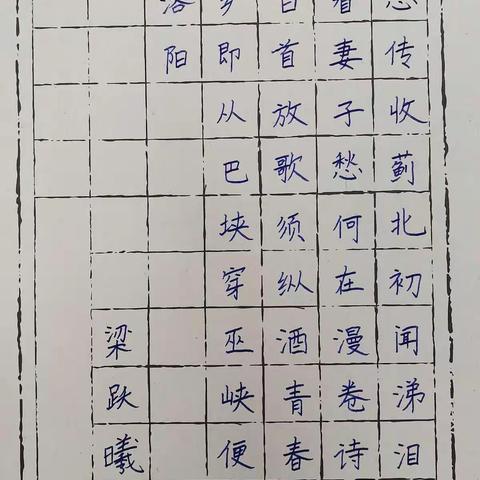 传收蓟北初闻涕泪
看妻子愁何在漫卷诗
首放歌须纵酒青春
乡即从巴埉穿巫峡便
洛阳
梁跃曦